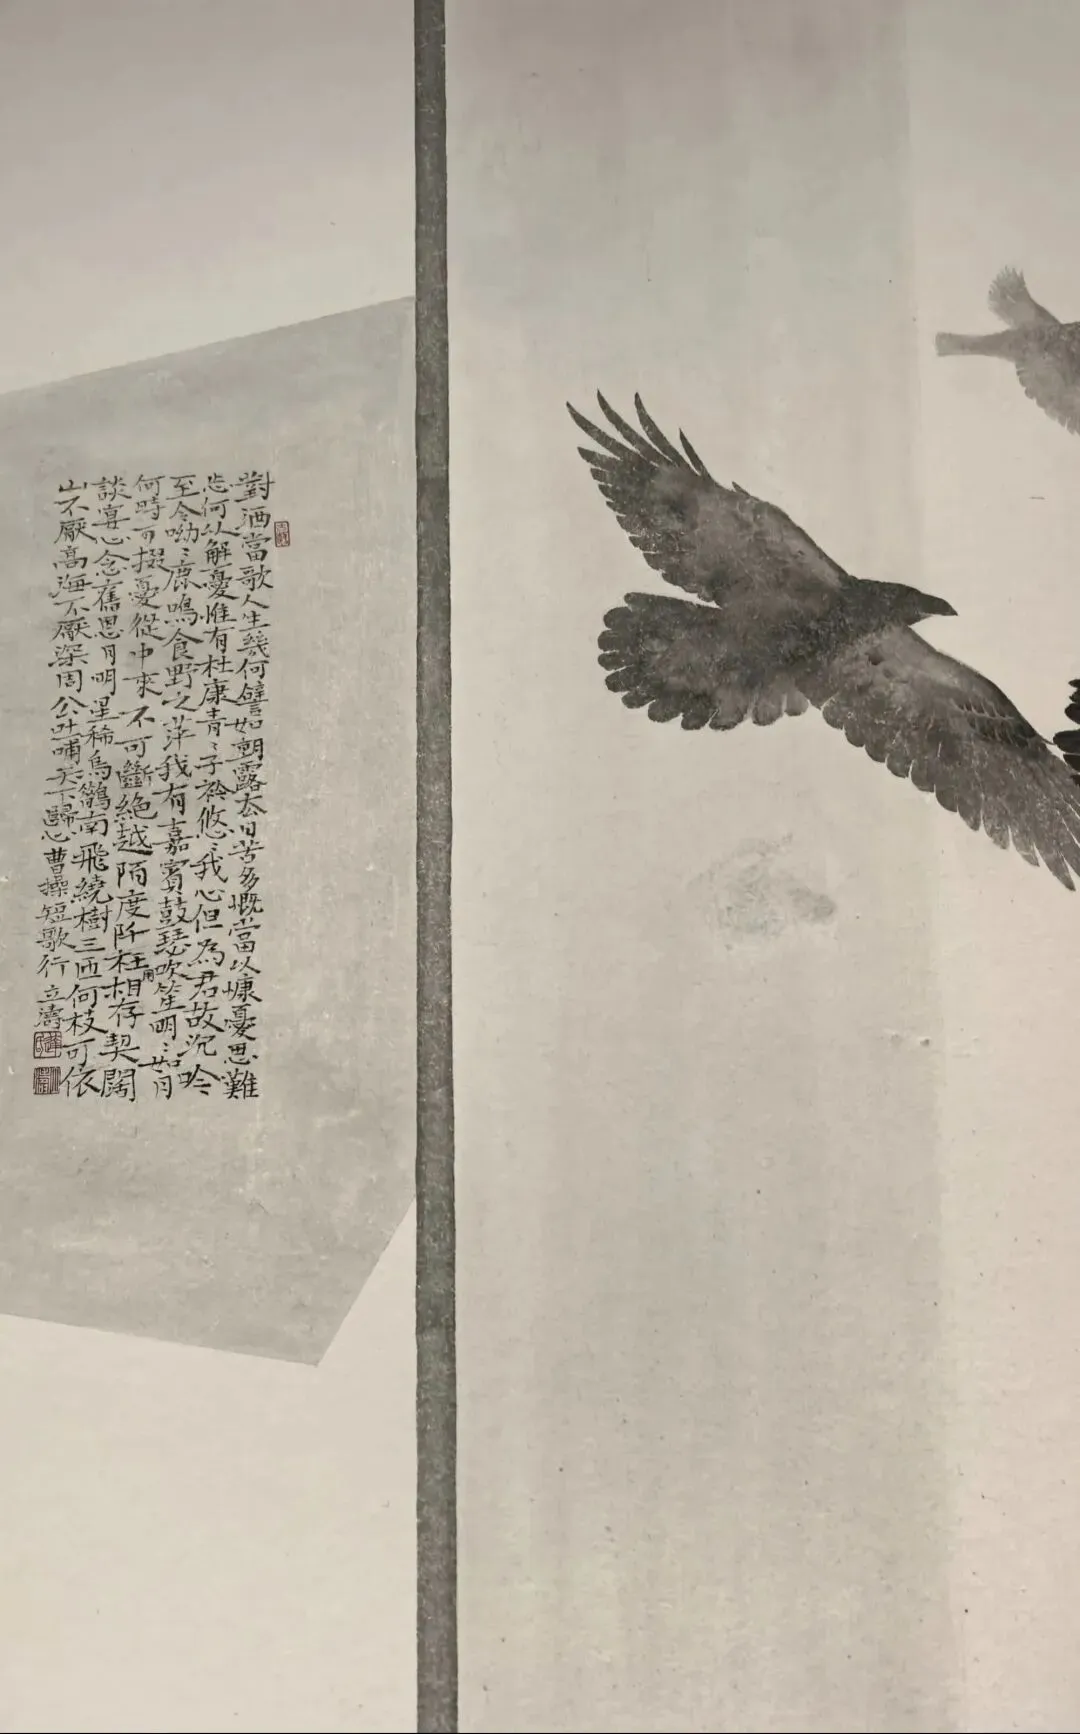 對酒當歌人生幾何譬如朝露去日苦多慨當以慷憂思難
忘何以解憂惟有杜康青〻子衿悠〻我心但為君故沉吟
至今呦〻鹿鳴食野之苹我有嘉賓鼓瑟吹笙明〻如月
何時可掇憂從中來不可斷絕越陌度阡枉用相存契闊
談宴心念舊恩月明星稀烏鵲南飛繞樹三匝何枝可依
山不厭高海不厭深周公吐哺天下歸心曹操短歌行立濤